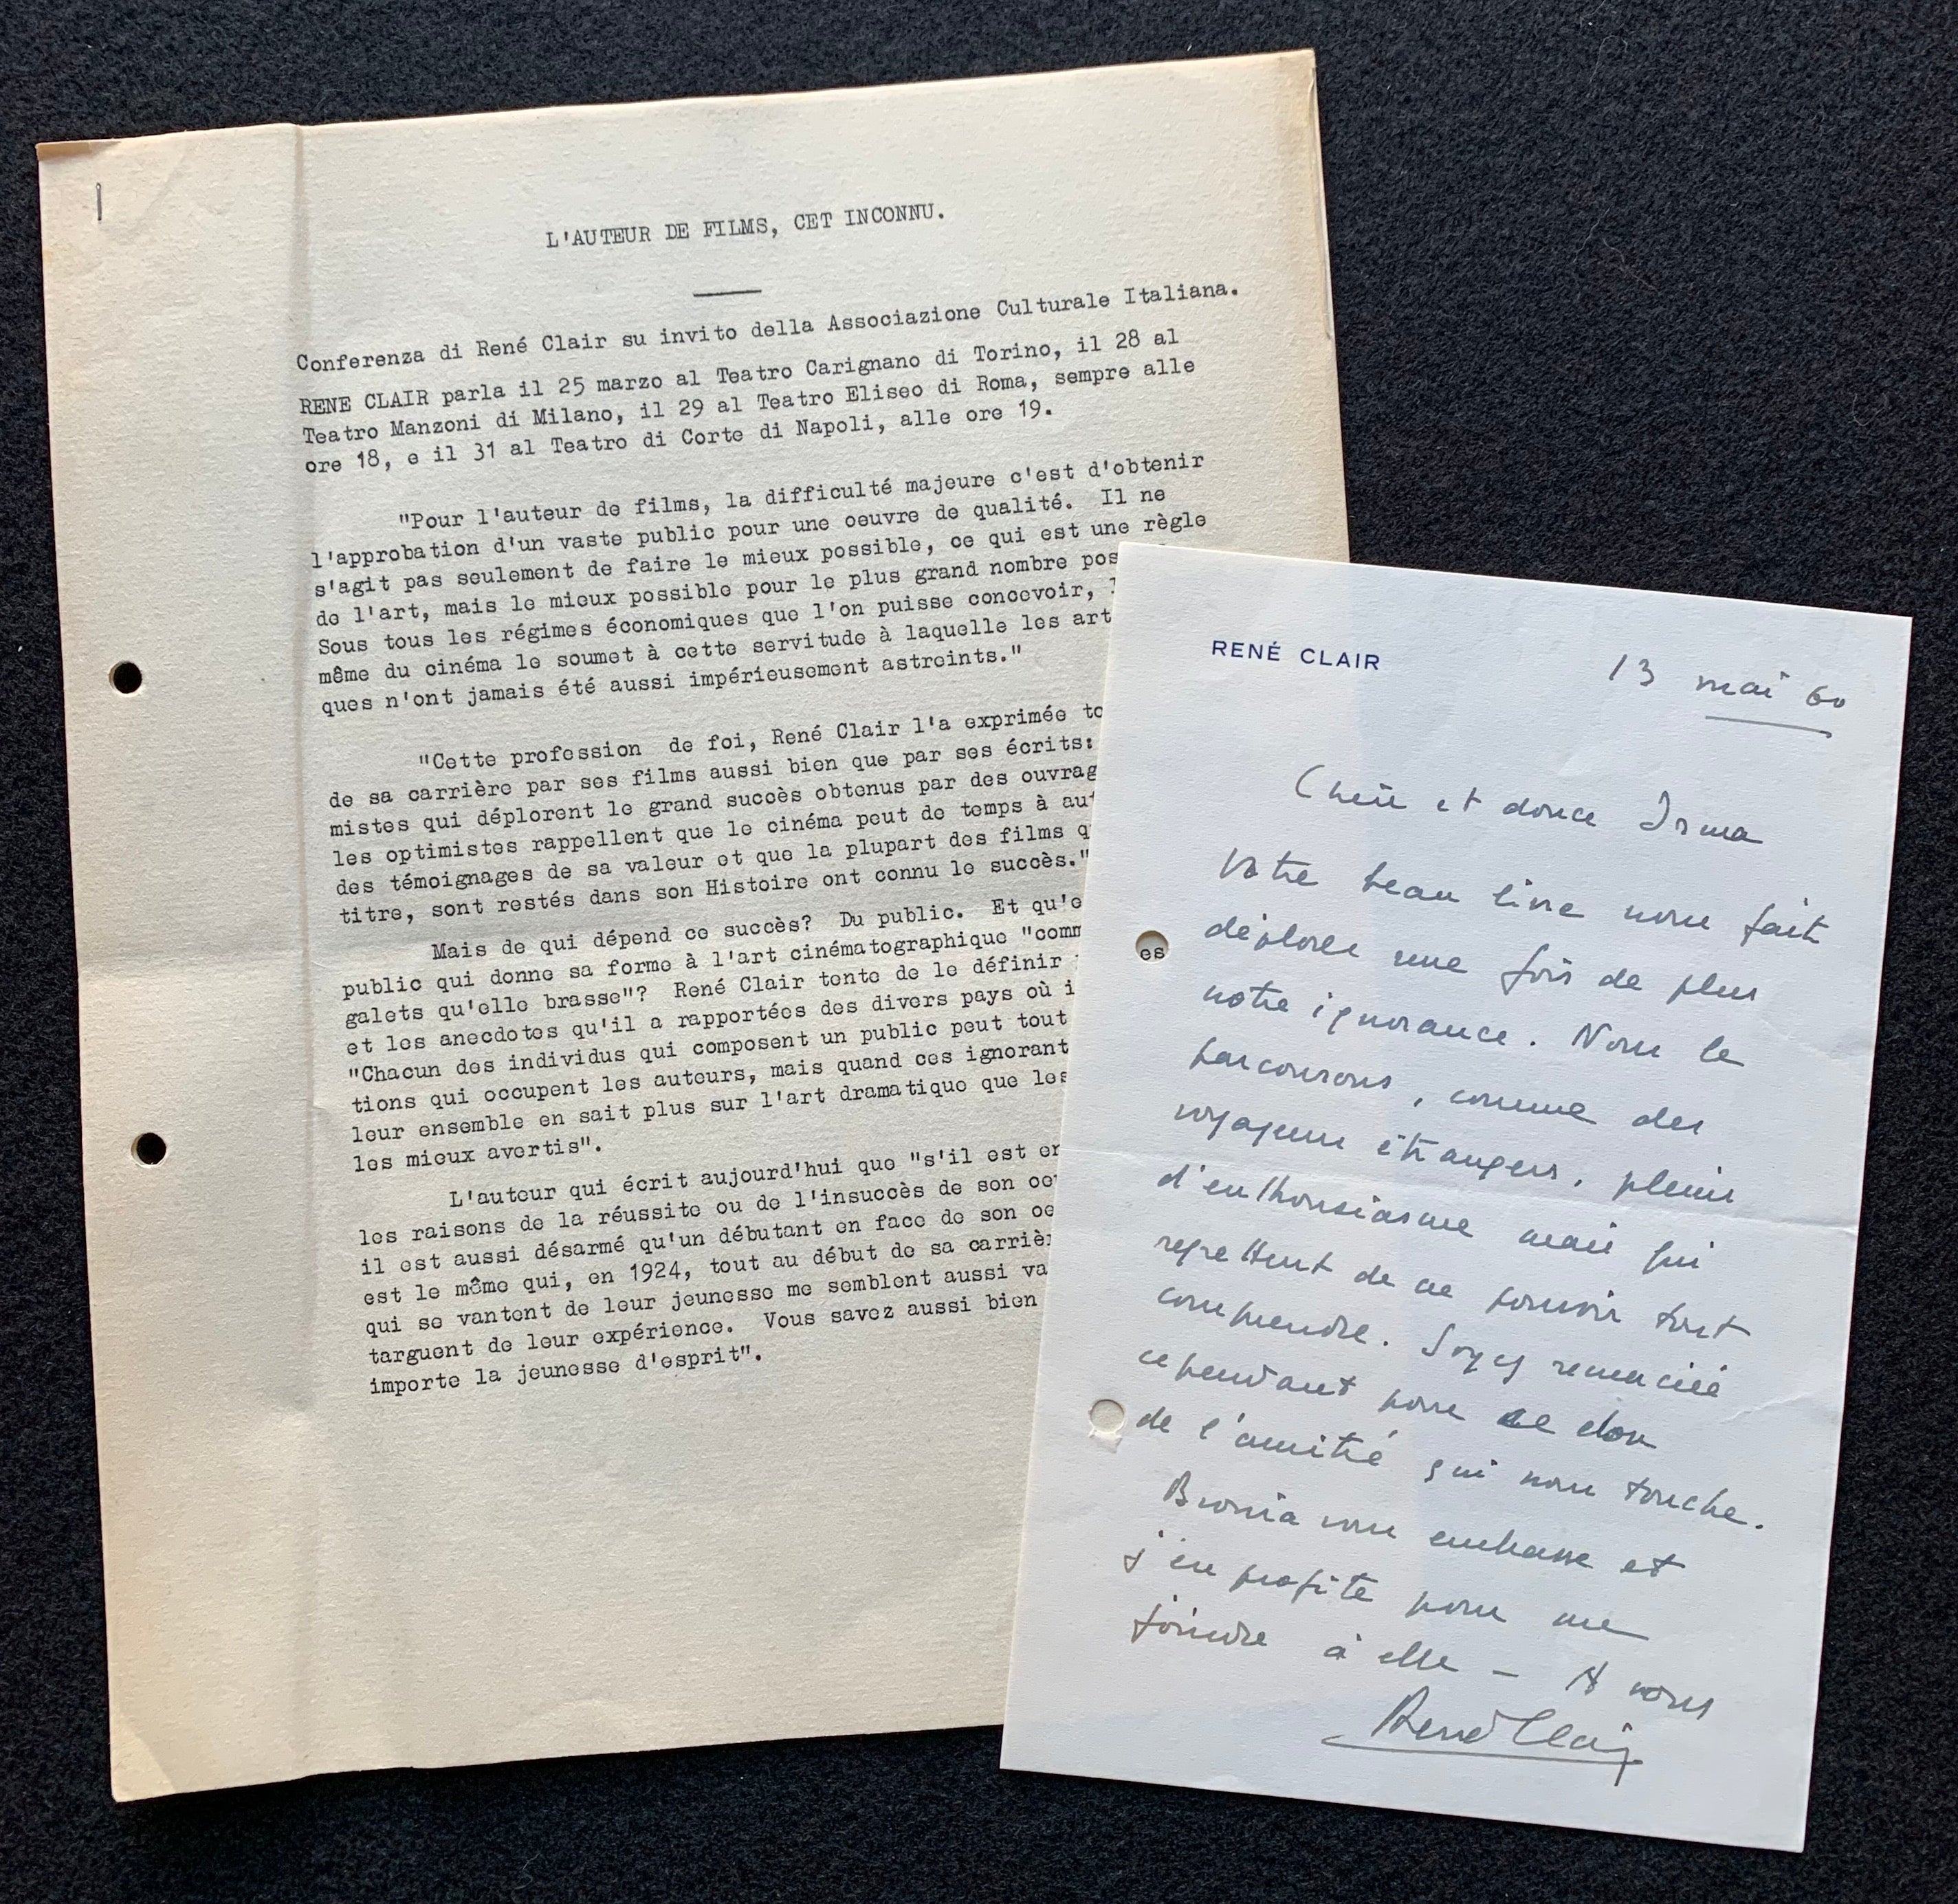 L'AUTEUR DE FILMS, CET INCONNU.
Conferenza di René Clair su invito della Associazione Culturale Italiana.
RENE CLAIR parla il 25 marzo al Teatro Carignano di Torino, il 28 al
Teatro Manzoni di Milano, il 29 al Teatro Eliseo di Roma, sempre alle
ore 18, e il 31 al Teatro di Corte di Napoli, alle ore 19.
"Pour l'auteur de films, la difficulté majeure c'est d'obtenir
l'approbation d'un vaste public pour une oeuvre de qualité. Il ne
s'agit pas seulement de faire le mieux possible, ce qui est une règle
de l'art, mais le mieux possible pour le plus grand nombre pos
Sous tous les régimes économiques que l'on puisse concevoir,
même du cinéma le soumet à cette servitude à laquelle les art
ques n'ont jamais été aussi impérieusement astreints."
"Cette profession de foi, René Clair l'a exprimée to
de sa carrière par ses films aussi bien que par ses écrits:
mistes qui déplorent le grand succès obtenus par des ouvrag
les optimistes rappellent que le cinéma peut de temps à aut
des témoignages de sa valeur et que la plupart des films q
titre, sont restés dans son Histoire ont connu le succès."
Mais de qui dépend ce succès? Du public. Et qu'e
public qui donne sa forme à l'art cinématographique "comm
galets qu'elle brasse"? René Clair tente de le définir
et les anecdotes qu'il a rapportées des divers pays où i
"Chacun des individus qui composent un public peut tout
tions qui occupent les auteurs, mais quand ces ignorant
leur ensemble en sait plus sur l'art dramatique que les
les mieux avertis".
L'auteur qui écrit aujourd'hui que "s'il est er
les raisons de la réussite ou de l'insuccès de son oe
il est aussi désarmé qu'un débutant en face de son oe
est le même qui, en 1924, tout au début de sa carrièr
qui se vantent de leur jeunesse me semblent aussi va
targuent de leur expérience. Vous savez aussi bien
importe la jeunesse d'esprit".
es
RENÉ CLAIR
13 mai 60
Chère et douce Irma
Votre beau livre nous fait
déplorer une fois de plus
notre ignorance. Nous le
parcourons, comme des
voyageurs étrangers, pleins
d'enthousiasme mais qui
regrettent de ne pouvoir tout
comprendre. Soyez remerciée
cependant pour ce don
de l'amitié qui nous touche.
Bronia vous embrasse et
j'en profite pour me
joindre à elle – A vous
René Clair